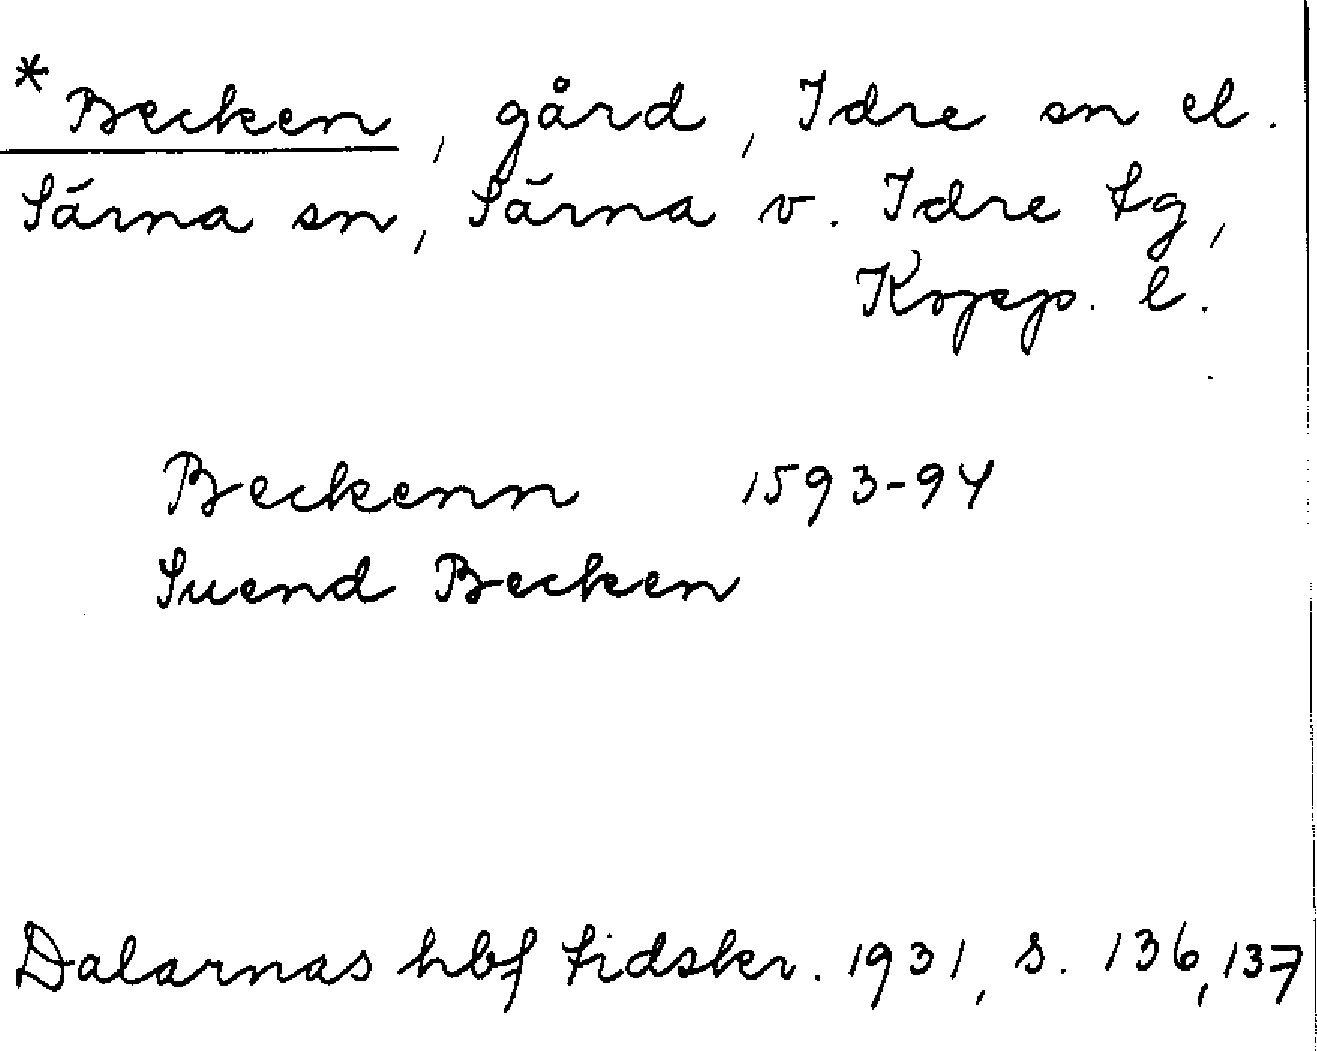 *Becken, gård, Idre sn el.
Särna sn, Särna o. Idre tg,
Kopp. l.
Beckenn 1593-94
Suend Becken
Dalarnas hbf tidskr. 1931, s. 136, 137